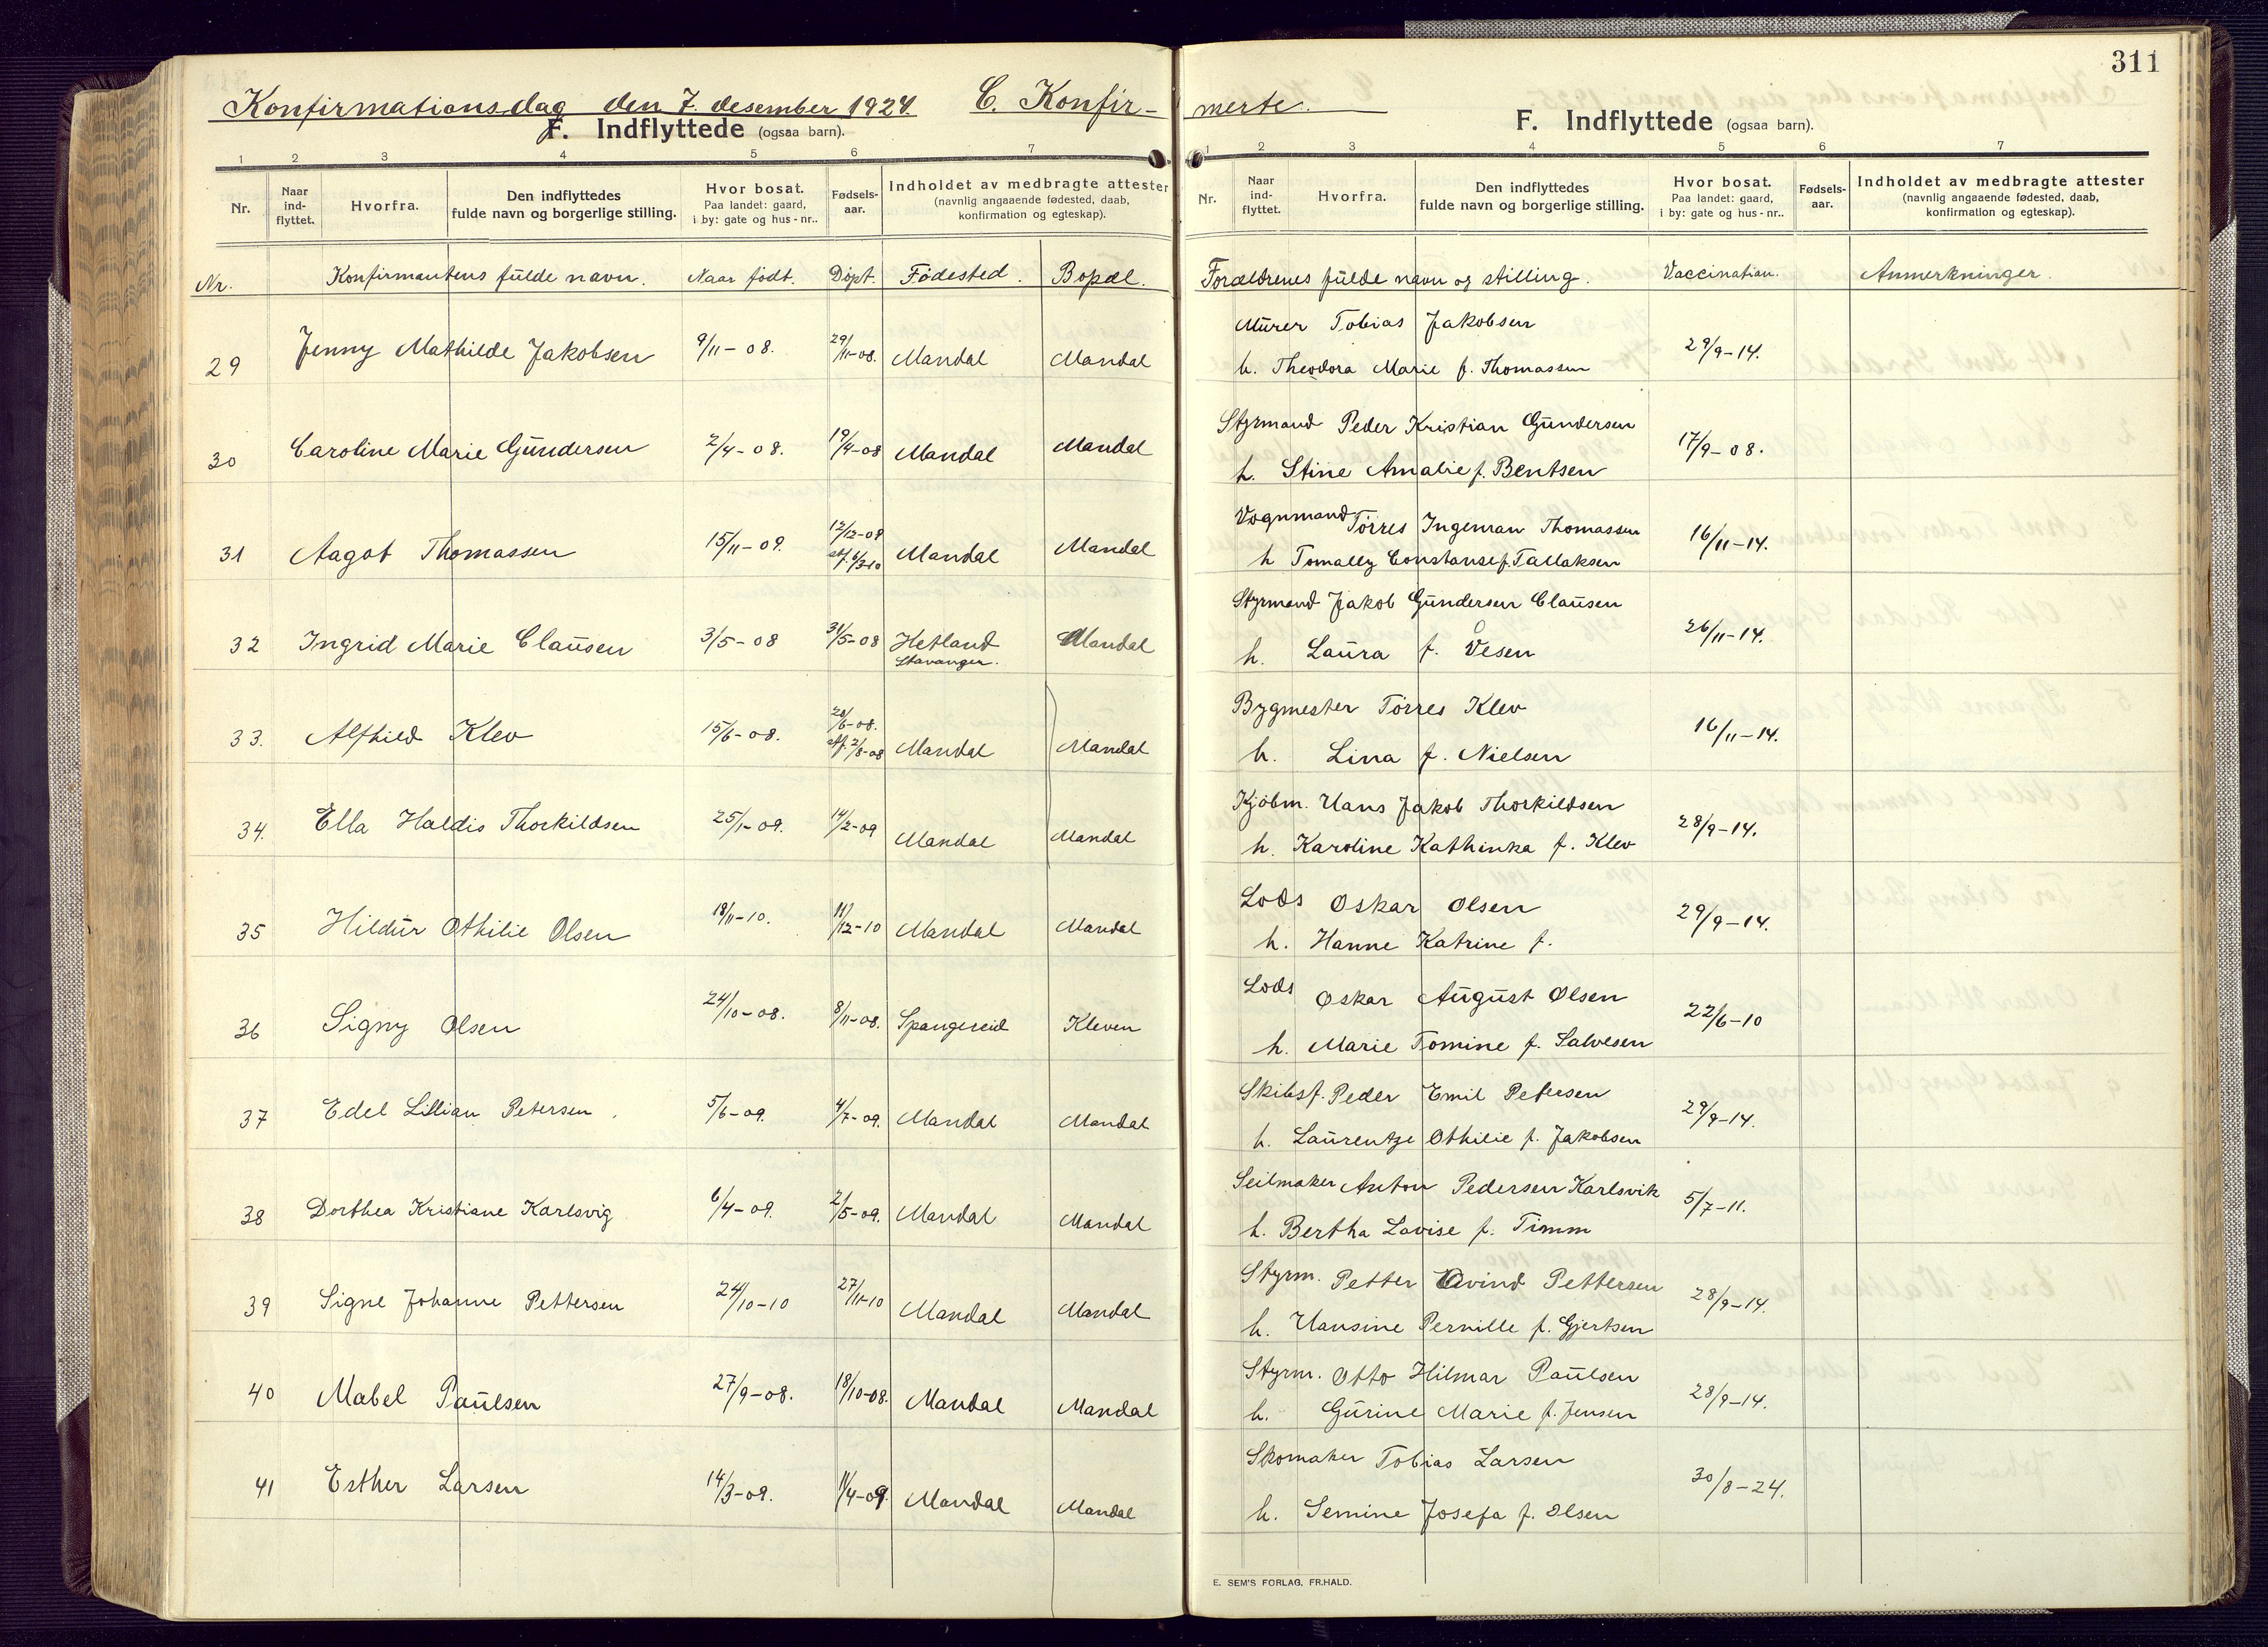 311
Konfirmationsdag den 7. desember 1924. C. Konfir- merte.
F. Indflyttede (ogsaa barn).
F. Indflyttede (ogsaa barn).
1 2 3 4 5 6 7
1 2 3 4 5 6 7
Nr. Naar ind-flyttet. Hvorfra. Den indflyttedes fulde navn og borgerlige stilling. Hvor bosat. Paa landet: gaard, i by: gate og hus-nr.. Fødsels-aar. Indholdet av medbragte attester (navnlig angaaende fødested, daab, konfirmation og egteskap).
Nr. Naar ind-flyttet. Hvorfra. Den indflyttedes fulde navn og borgerlige stilling. Hvor bosat. Paa landet: gaard, i by: gate og hus-nr.. Fødsels-aar. Indholdet av medbragte attester (navnlig angaaende fødested, daab, konfirmation og egteskap).
Nr. Konfirmantens fulde navn. Naar født. Døpt. Fødested. Bopæl. Forældrenes fulde navn og stilling. Vaccination. Anmerkninger.
29 Jenny Mathilde Jakobsen 9/11-08. 29/11-08. Mandal Mandal Murer Tobias Jakobsen 29/9-14.
h. Theodora Marie f. Thomassen
30 Caroline Marie Gundersen 2/4-08. 19/4-08 Mandal Mandal Styrmand Peder Kristian Gundersen 17/9-08.
h. Stine Amalie f. Bentsen
31 Aagot Thomassen 15/11-09. 12/12-09 Mandal Mandal Vognmand Tørres Ingeman Thomassen 16/11-14.
stf. 6/3-10 h Tomally Constanse f. Tallaksen
32 Ingrid Marie Clausen 3/5-08 31/5-08 Hetland Mandal Styrmand Jakob Gundersen Clausen 26/11-14.
Stavanger. h. Laura f.
33. Alfhild Klev 15/6-08. 28/6-08. Mandal Mandal Bygmester Tørres Klev 16/11-14.
stf. 2/8-08 h. Lina f. Nielsen
34. Ella Haldis Thorkildsen 25/1-09. 14/2-09 Mandal Mandal Kjøbm. Hans Jakob Thorkildsen 28/9-14.
h. Karoline Kathinka f. Klev
35 Hildur Othilie Olsen 18/11-10. 11/12-10 Mandal Mandal Lods Oskar Olsen 29/9-14.
h. Hanne Katrine f.
36 Signy Olsen 24/10-08. 8/11-08. Spangereid Kleven Lods Oskar August Olsen 22/6-10
h. Marie Tomine f. Salvesen
37 Edel Lillian Petersen. 5/6-09. 4/7-09. Mandal Mandal Skibsf. Peder Emil Petersen 29/9-14.
h. Laurentze Othilie f. Jakobsen
38 Dorthea Kristiane Karlsvig 6/4-09. 2/5-09. Mandal Mandal Seilmaker Anton Pedersen Karlsvik 5/7-11.
h. Bertha Lovise f. Timm
39 Signe Johanne Pettersen 24/10-10 27/11-10 Mandal Mandal Styrm. Petter Øvind Pettersen 28/9-14.
h. Hansine Pernille f. Gjertsen
40 Mabel Paulsen 27/9-08. 18/10-08. Mandal Mandal Styrm. Otto Hilmar Paulsen 28/9-14.
h. Gurine Marie f. Jensen
41 Esther Larsen 14/3-09. 11/4-09. Mandal Mandal Skomaker Tobias Larsen 30/8-24.
h. Semine Josefa f. Olsen
E. SEM'S FORLAG, FR.HALD.